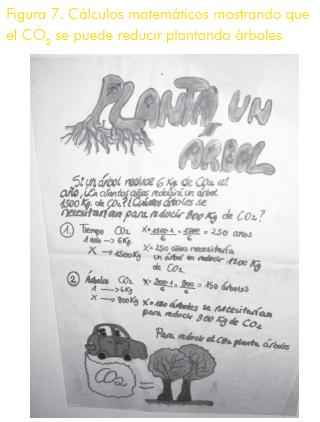 Figura 7. Cálculos matemáticos mostrando que
el CO2 se puede reducir plantando árboles
PLANTA UN
ARBOL
Si un árbol reduce 6 Kg. de CO2 al
año, ¿En cuantos años reducirá un árbol
1500 Kg. de CO2? ¿Cuántos árboles se
necesitarían para reducir 900 Kg de CO2?
① Tiempo CO2 X=1500·1/6=1500/6=250 años
1 año → 6Kg.
X → 1500Kg X=250 años necesitaría
un árbol en reducir 1500 Kg
de CO2
② Árboles CO2 X=900·1/6=900/6=150 árboles
1 → 6Kg
X → 900Kg X=150 árboles se necesitarían
para reducir 900 Kg de CO2
Para reducir el CO2 planta árboles
CO2 =